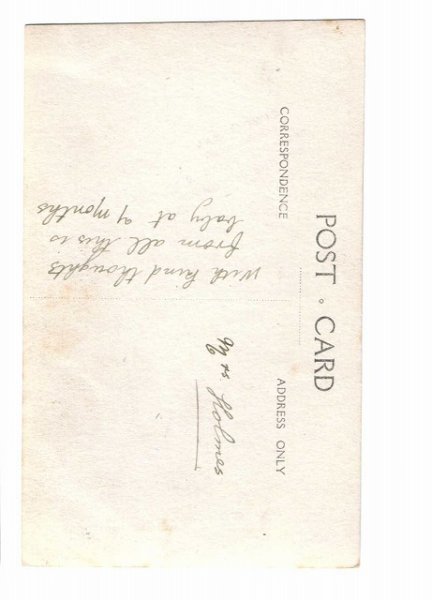 POST CARD
CORRESPONDENCE
ADDRESS ONLY
With kind thoughts
from all this is
baby at 9 months
Mrs Holmes